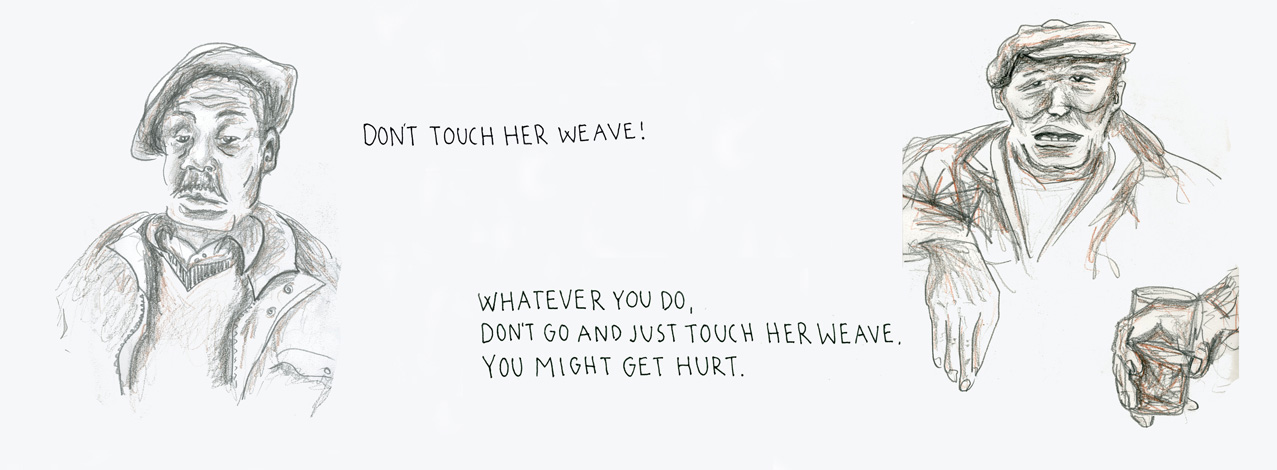 DON'T TOUCH HER WEAVE!
WHATEVER YOU DO,
DON'T GO AND JUST TOUCH HER WEAVE.
YOU MIGHT GET HURT.